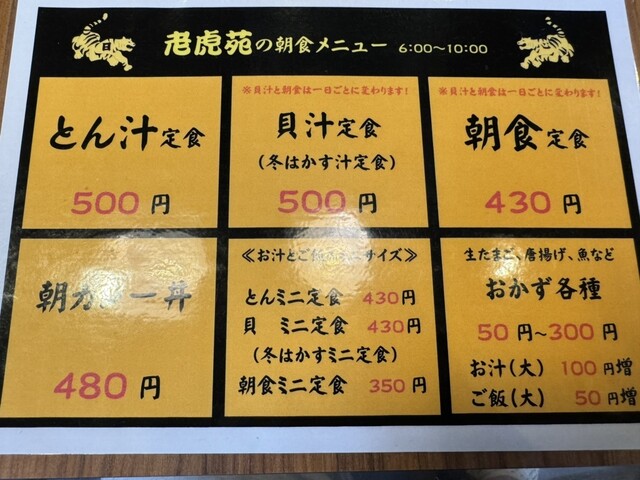 老虎苑の朝食メニュー 6:00〜10:00
とん汁定食
500円
※貝汁と朝食は一日ごとに変わります!
貝汁定食
(冬はかす汁定食)
500円
※貝汁と朝食は一日ごとに変わります!
朝食定食
430円
朝カレー丼
480円
≪お汁とご飯のミニサイズ≫
とんミニ定食 430円
貝 ミニ定食 430円
(冬はかすミニ定食)
朝食ミニ定食 350円
生たまご、唐揚げ、魚など
おかず各種
50円〜300円
お汁(大) 100円増
ご飯(大) 50円増